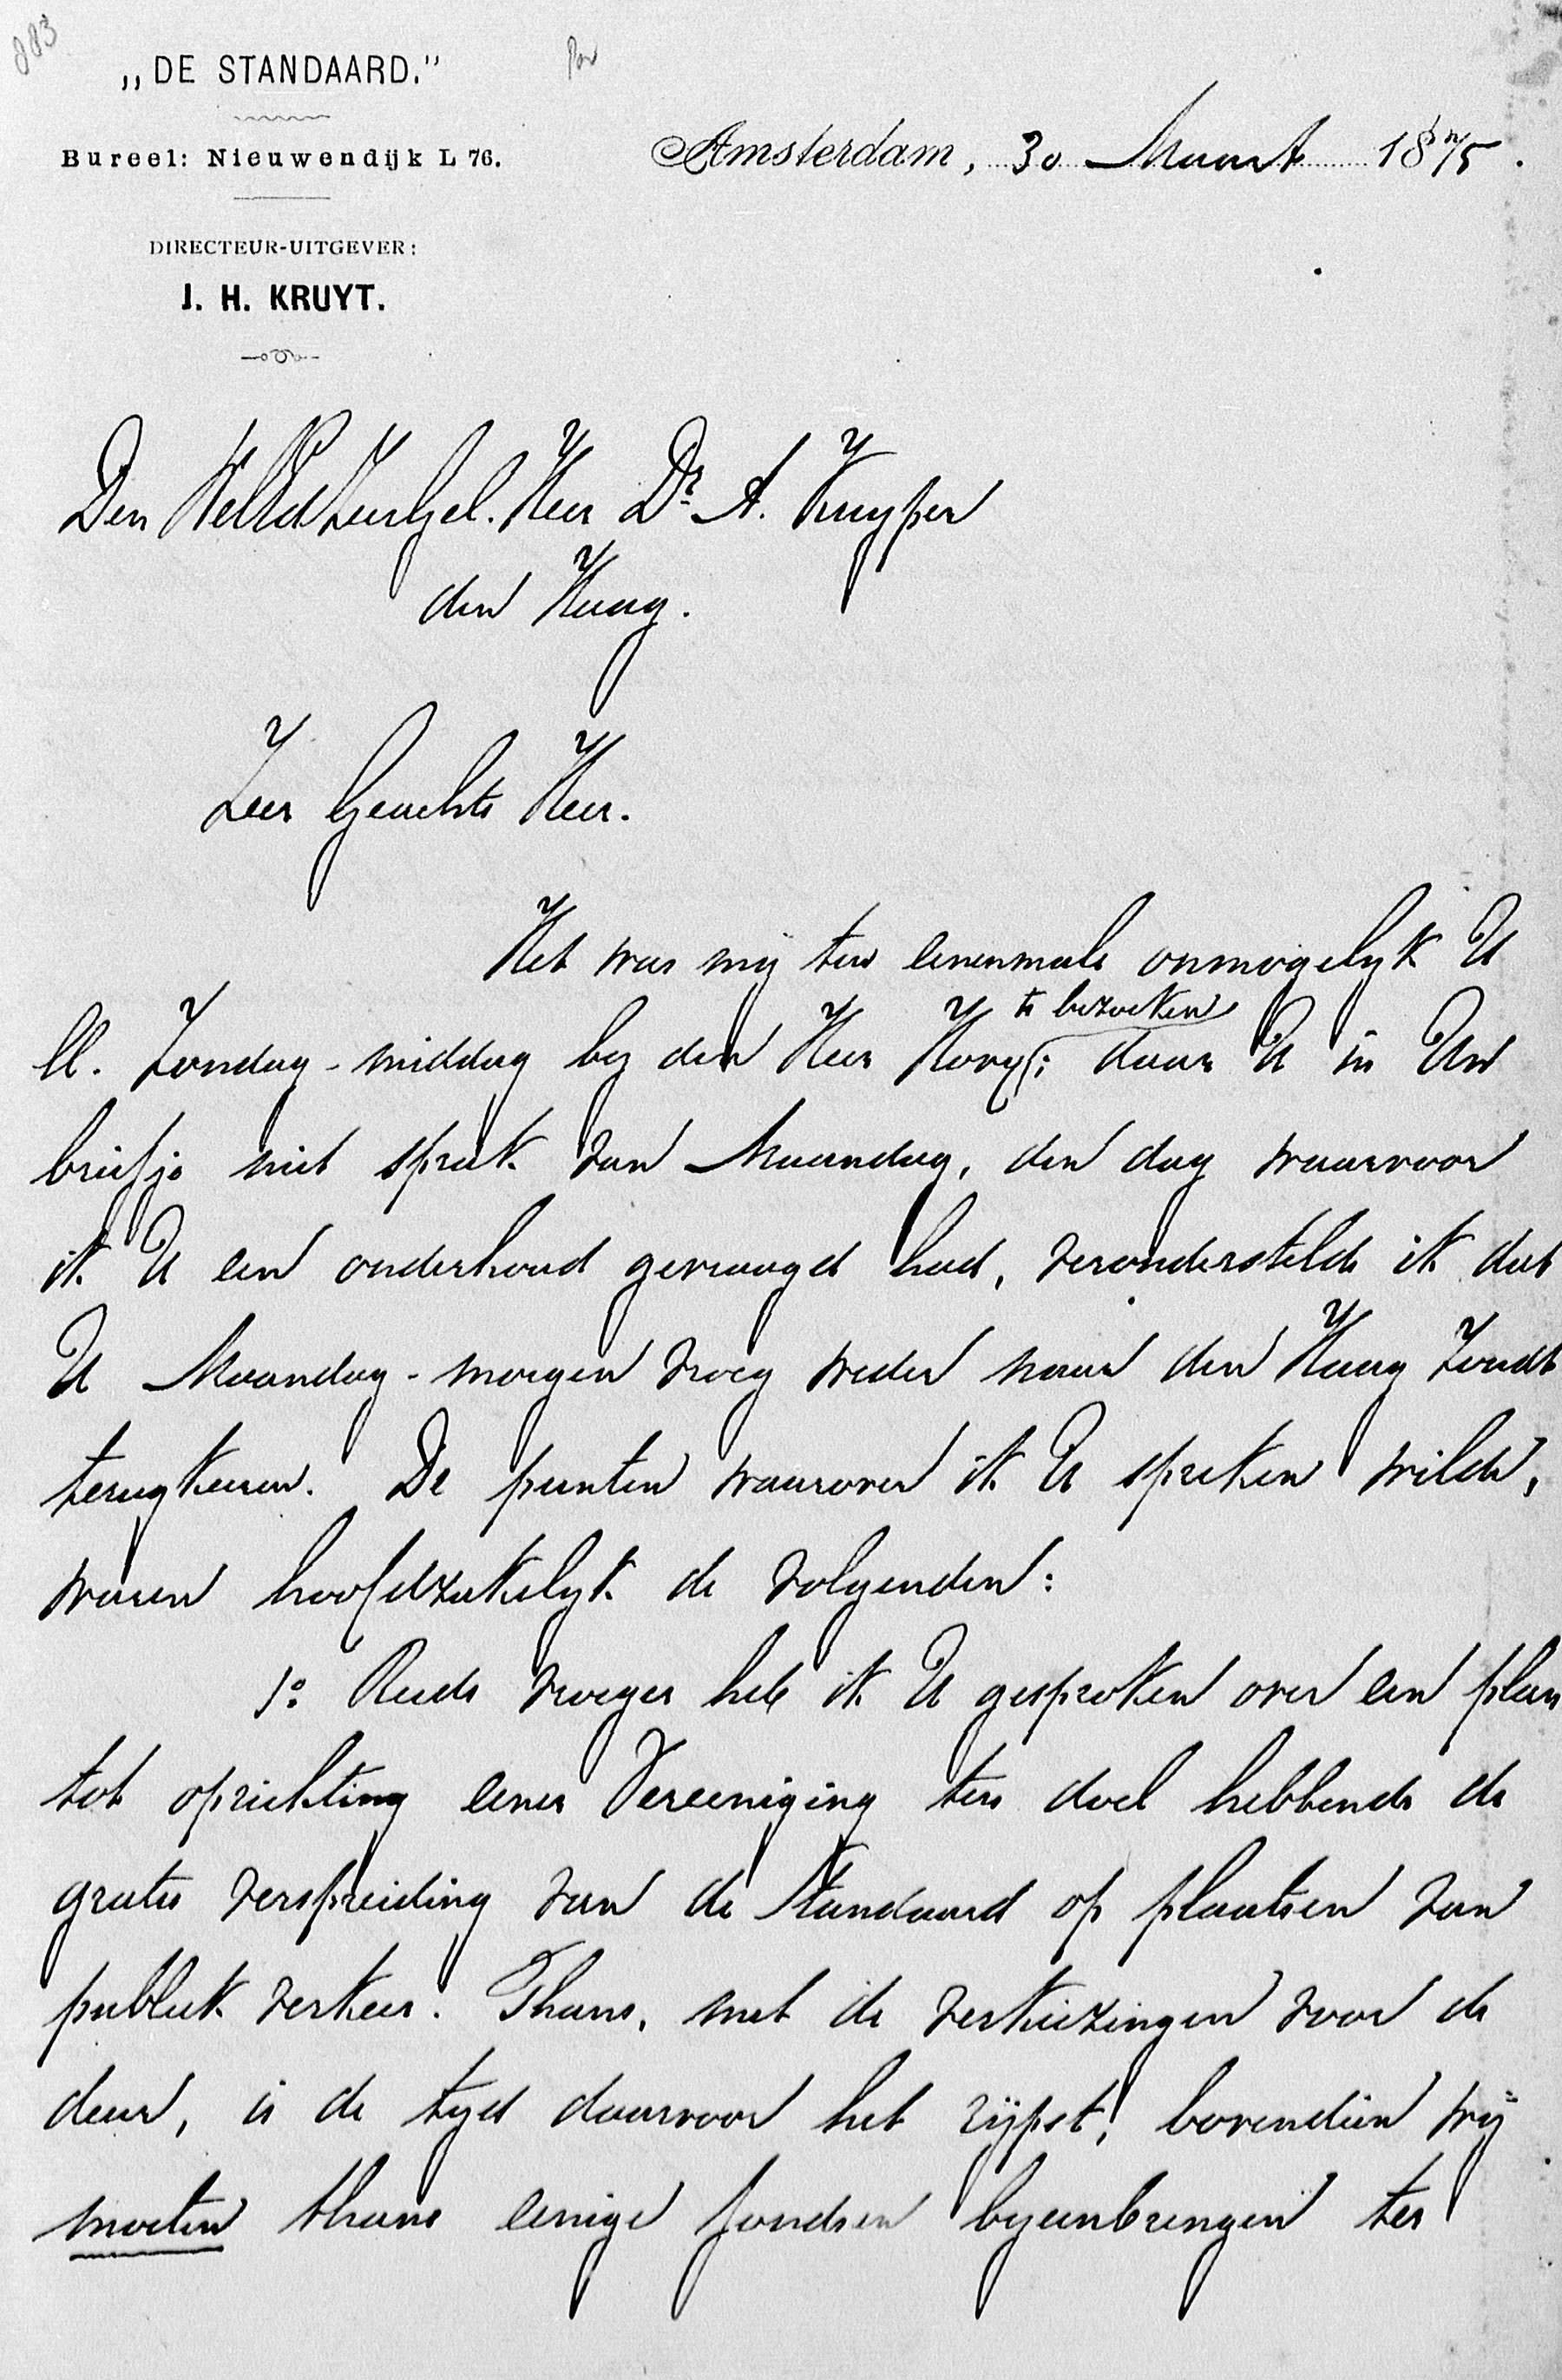 883
„DE STANDAARD.”
Bureel: Nieuwendijk L 76.
Amsterdam, 30 Maart 1875.
DIRECTEUR-UITGEVER:
J. H. KRUYT.
Den WelEd Zeergel. Heer Dr. A. Kuyper
den Haag.
Zeer Geachte Heer.
Het was mij ten eenenmale onmogelyk U
te bezoeken
ll. Zondag-middag by den Heer Hovy; daar U in Uw
briefje niet sprak van Maandag, den dag waarvoor
ik U een onderhoud gevraagd had, veronderstelde ik dat
U Maandag-morgen vroeg weder naar den Haag zoudt
terugkeeren. De punten waarover ik U spreken wilde,
waren hoofdzakelyk de volgenden:
1o. Reeds vroeger heb ik U gesproken over een plan
tot oprichting eener Vereeniging ten doel hebbende de
gratis verspreiding van de Standaard op plaatsen van
publiek verkeer. Thans, met de verkiezingen voor de
deur, is de tyd daarvoor het rijpst; bovendien wij
moeten thans eenige fondsen byeenbrengen ter